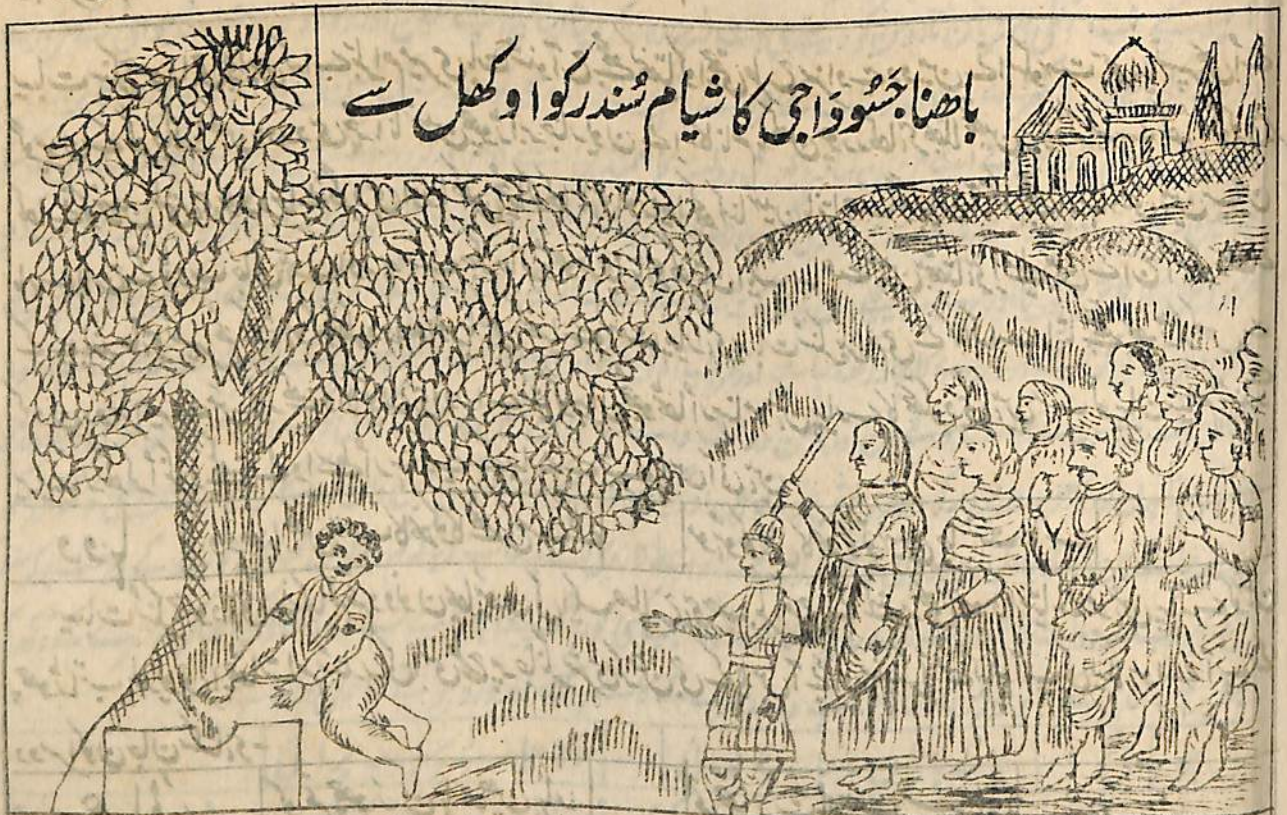 باھنا جَسُووَاجی کا شیام سُندر کو اوکھل سے